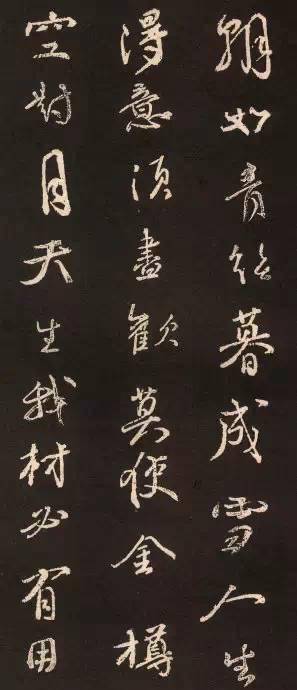 朝如青絲暮成雪人生
得意須盡歡莫使金樽
空對月天生我材必有用